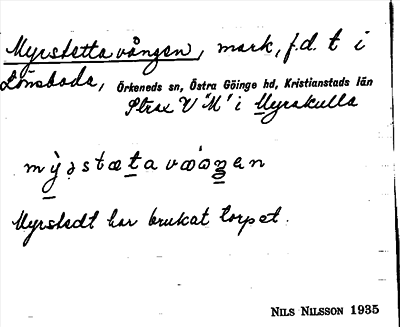 Myrstettavången, mark, f.d. t i
Lönsboda, Örkeneds sn, Östra Göinge hd, Kristianstads län
Strax V "M" i Myrakulla
Myrstedt har brukat torpet.
NILS NILSSON 1935